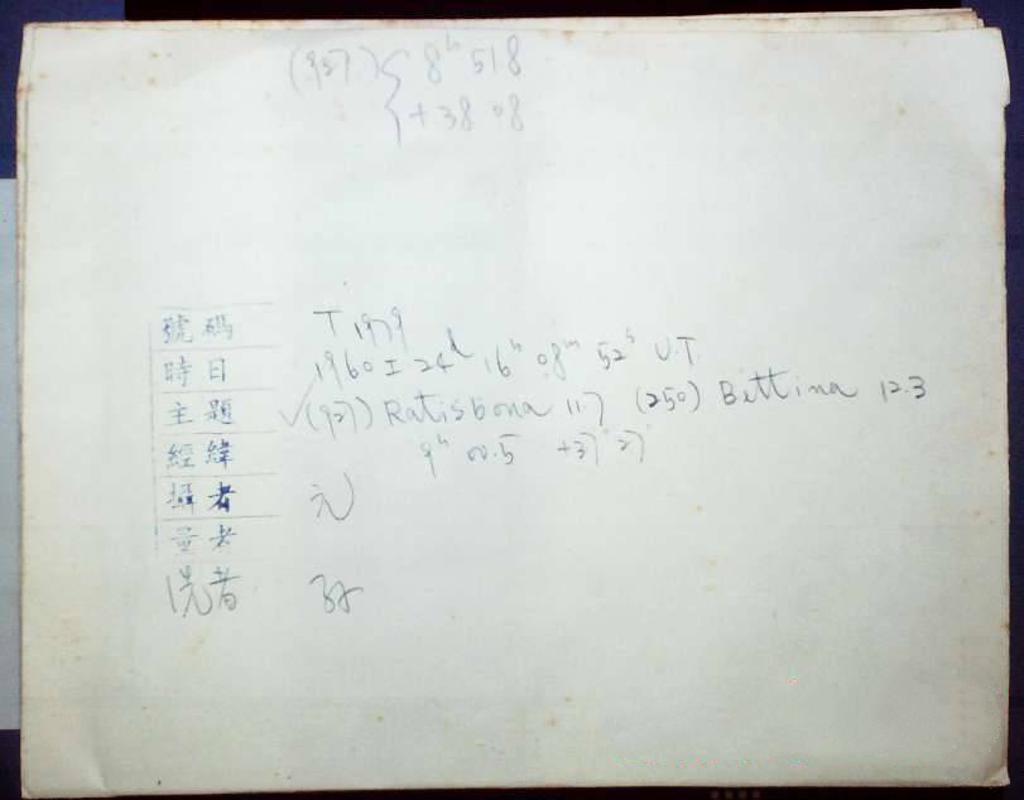 (927) { 8h 51.8
+38 08
號碼 T 1979
時日 1960 I 24d 16h 08m 52s U.T.
主題 ✓(927) Ratisbona 11.7 (250) Bettina 12.3
經緯 9h 00.5 +37° 27'
攝者 元
量者
洗者